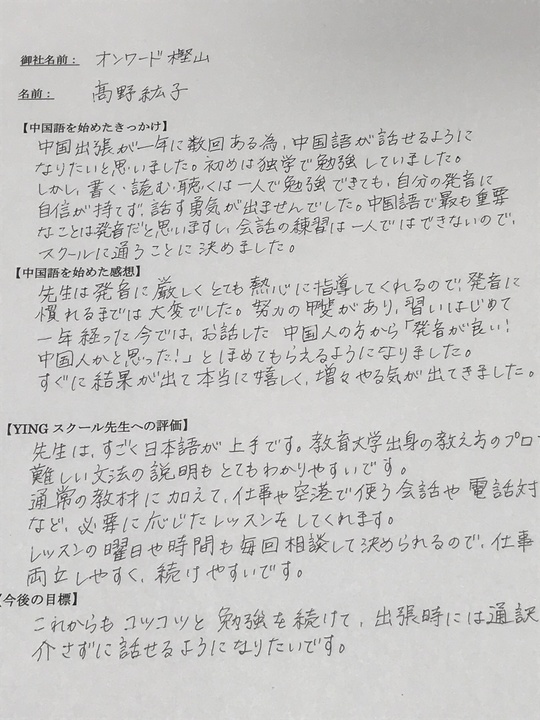 御社名前： オンワード樫山
名前： 髙野紘子
【中国語を始めたきっかけ】
中国出張が一年に数回ある為、中国語が話せるように
なりたいと思いました。初めは独学で勉強していました。
しかし、書く・読む・聴くは一人で勉強できても、自分の発音に
自信が持てず、話す勇気が出ませんでした。中国語で最も重要
なことは発音だと思いますし、会話の練習は一人ではできないので、
スクールに通うことに決めました。
【中国語を始めた感想】
先生は発音に厳しくとても熱心に指導してくれるので、発音に
慣れるまでは大変でした。努力の甲斐があり、習いはじめて
一年経った今では、お話した中国人の方から「発音が良い！
中国人かと思った！」とほめてもらえるようになりました。
すぐに結果が出て本当に嬉しく、増々やる気が出てきました。
【YING スクール先生への評価】
先生は、すごく日本語が上手です。教育大学出身の教え方のプロ
難しい文法の説明もとてもわかりやすいです。
通常の教材に加えて、仕事や空港で使う会話や電話対
など、必要に応じたレッスンをしてくれます。
レッスンの曜日や時間も毎回相談して決められるので、仕事
両立しやすく、続けやすいです。
【今後の目標】
これからもコツコツと勉強を続けて、出張時には通訳
介さずに話せるようになりたいです。